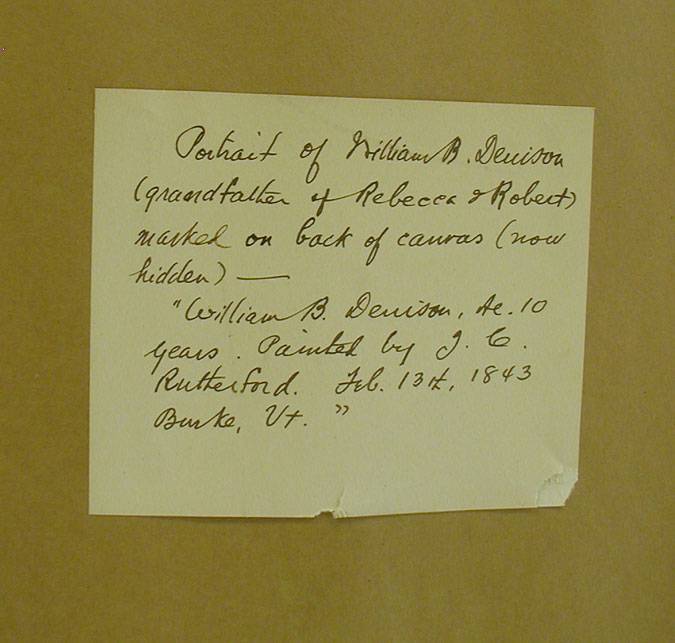 Portrait of William B. Denison
(grandfather of Rebecca & Robert)
marked on back of canvas (now
hidden) —
"William B. Denison, Ae. 10
years. Painted by J. C.
Rutherford. Feb. 13th, 1843
Burke, Vt. "